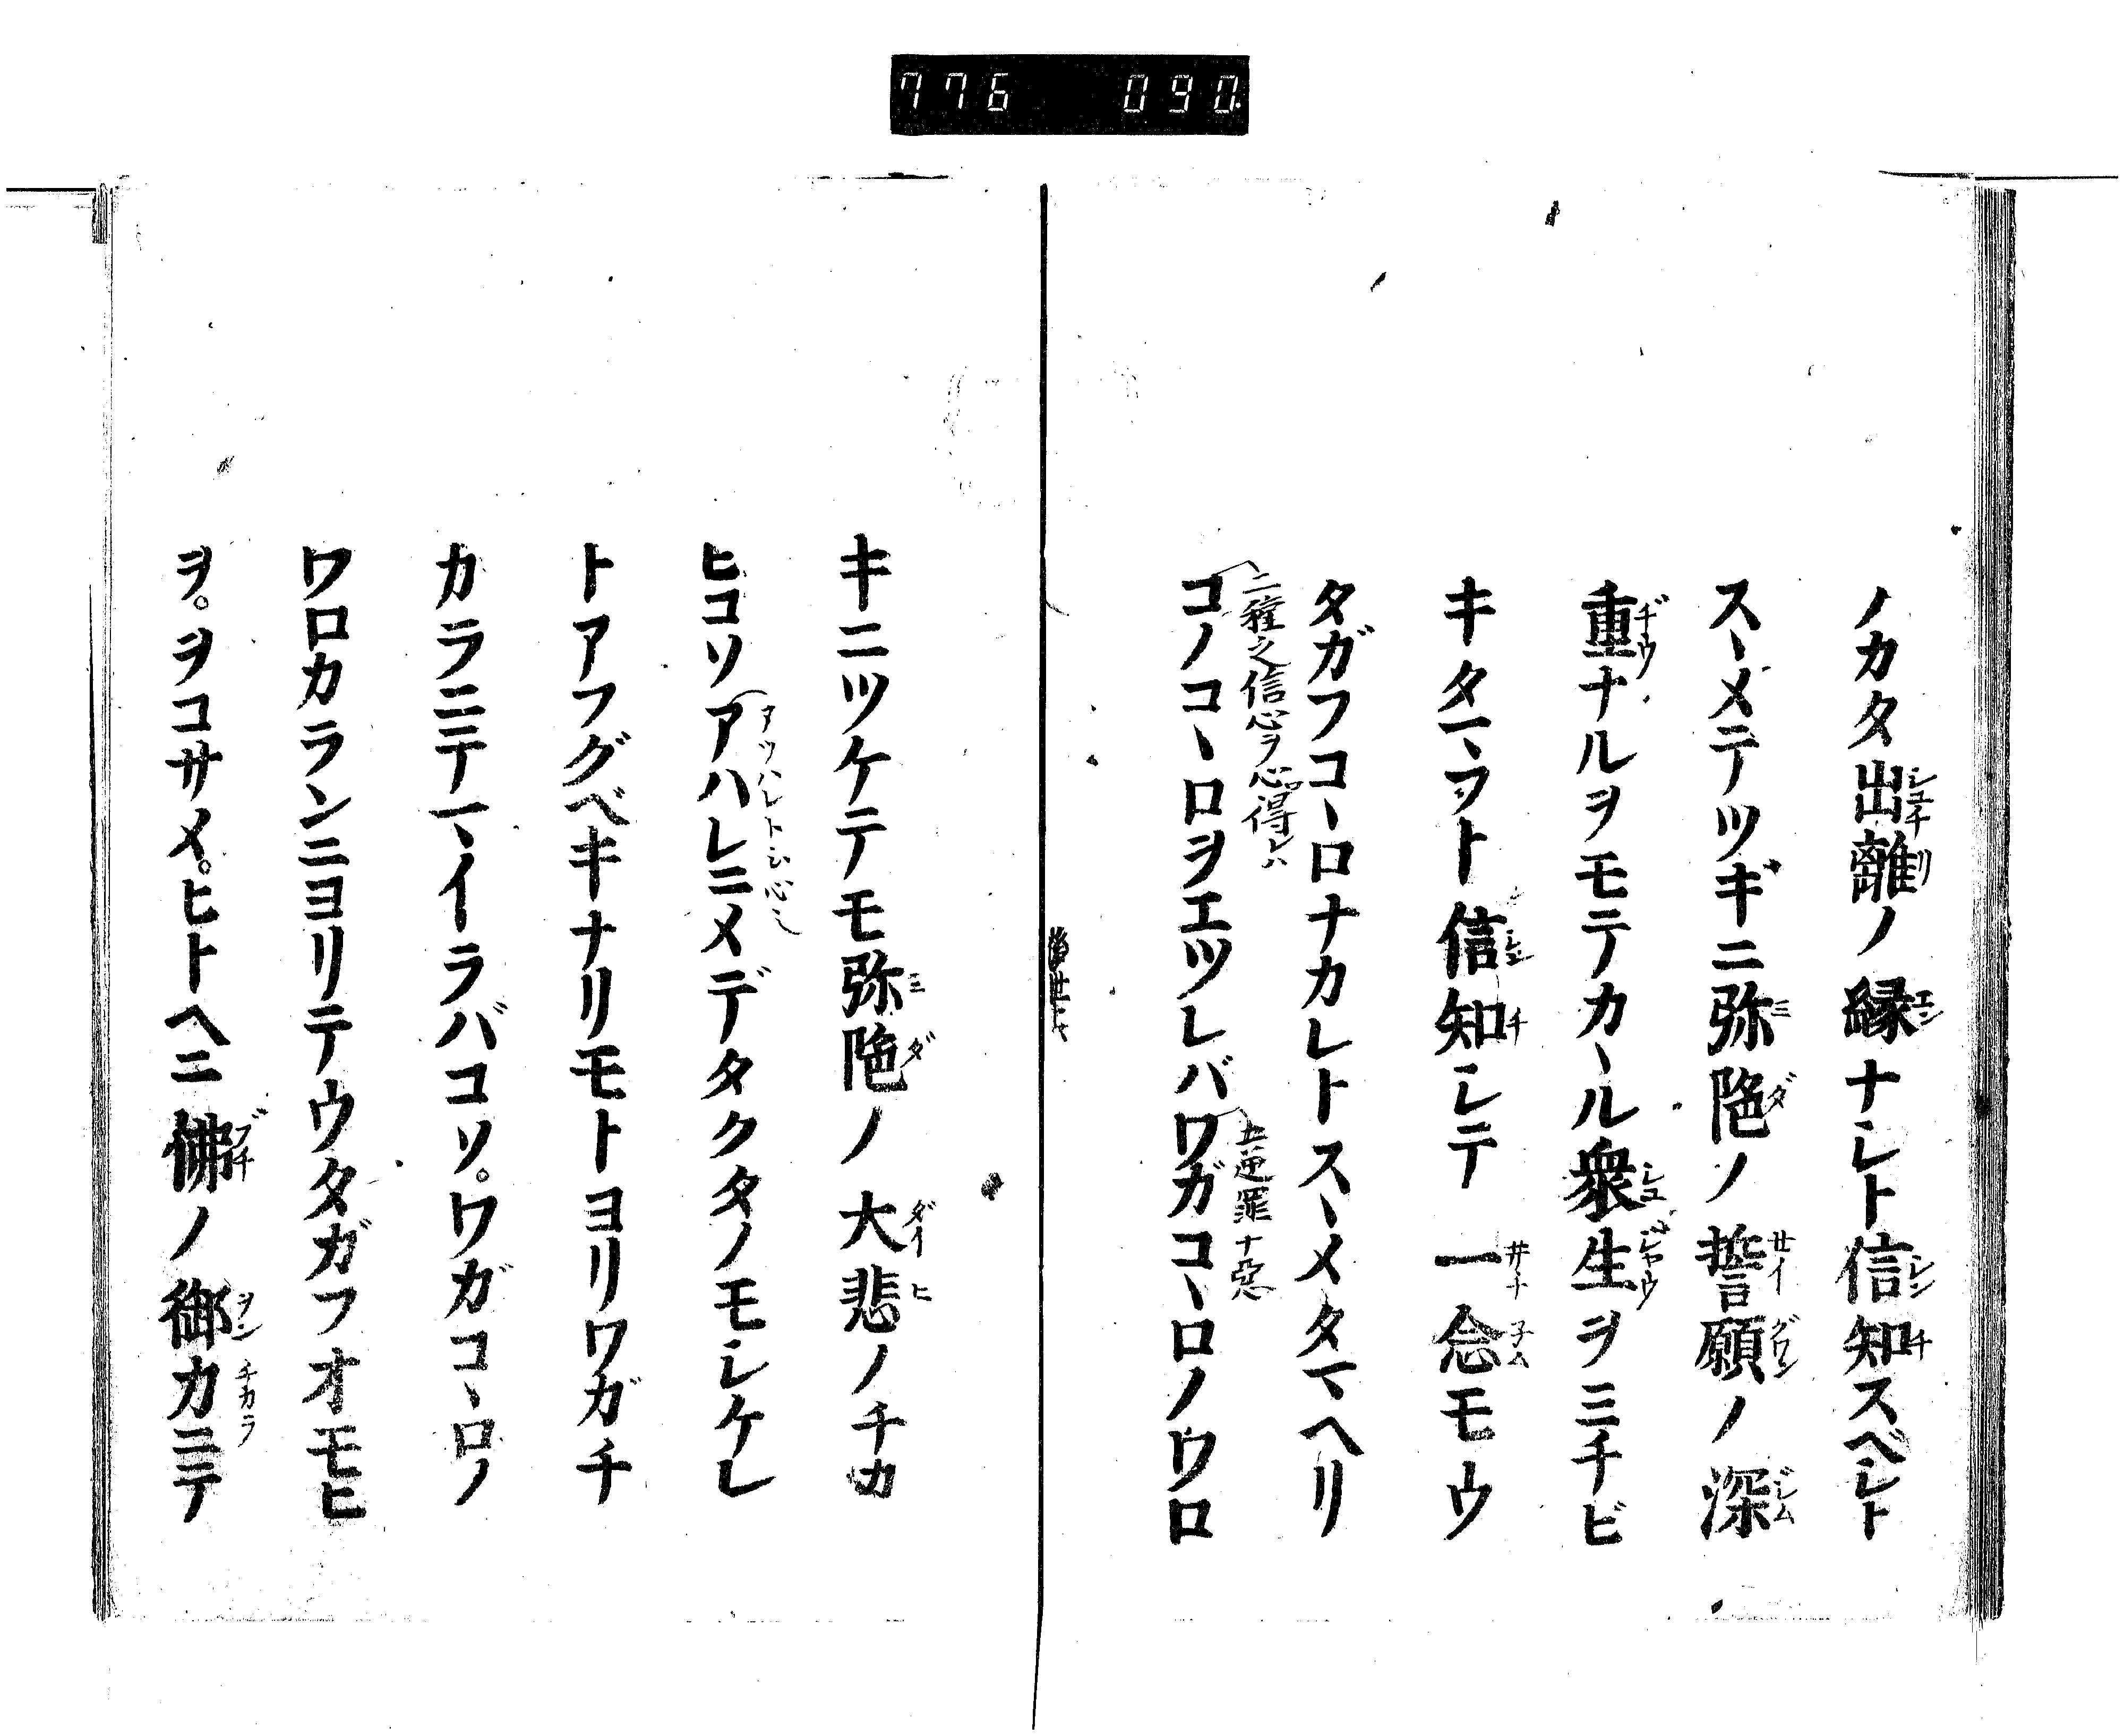 776 090
ノカタ出離ノ縁ナシト信知スベシト
シユチ リ エン シン チ
スヽメテツギニ弥陁ノ誓願ノ深
ミ ダ セイ グワン ジム
重ナルヲモテカヽル衆生ヲミチビ
ヂウ シユ ジヤウ
キタマヽフト信知シテ一念モウ
シン チ ヰチ子ム
タガフコヽロナカレトスヽメタマヘリ
二種之信心ヲ心得レハ 五逆罪十惡
コノコヽロヲエツレバワガコヽロノワロ
キニツケテモ弥陁ノ大悲ノチカ
ミ ダ ダイ ヒ
ヒコソアハレニメデタクタノモシケレ
アツハレト
トアフグベキナリモトヨリワガチ
カラニテマイラバコソ。ワガコヽロノ
ワロカランニヨリテウタガフオモヒ
ヲ。ヲコサメ。ヒトヘニ佛ノ御力ニテ
ブチ ヲン チカラ